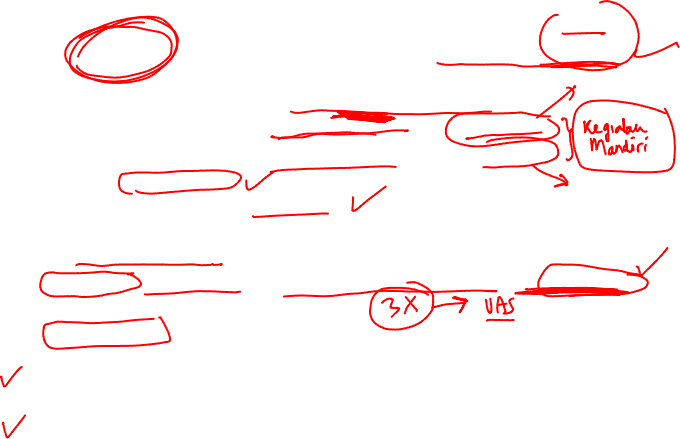 Kegiatan
Mandiri
3X
UAS